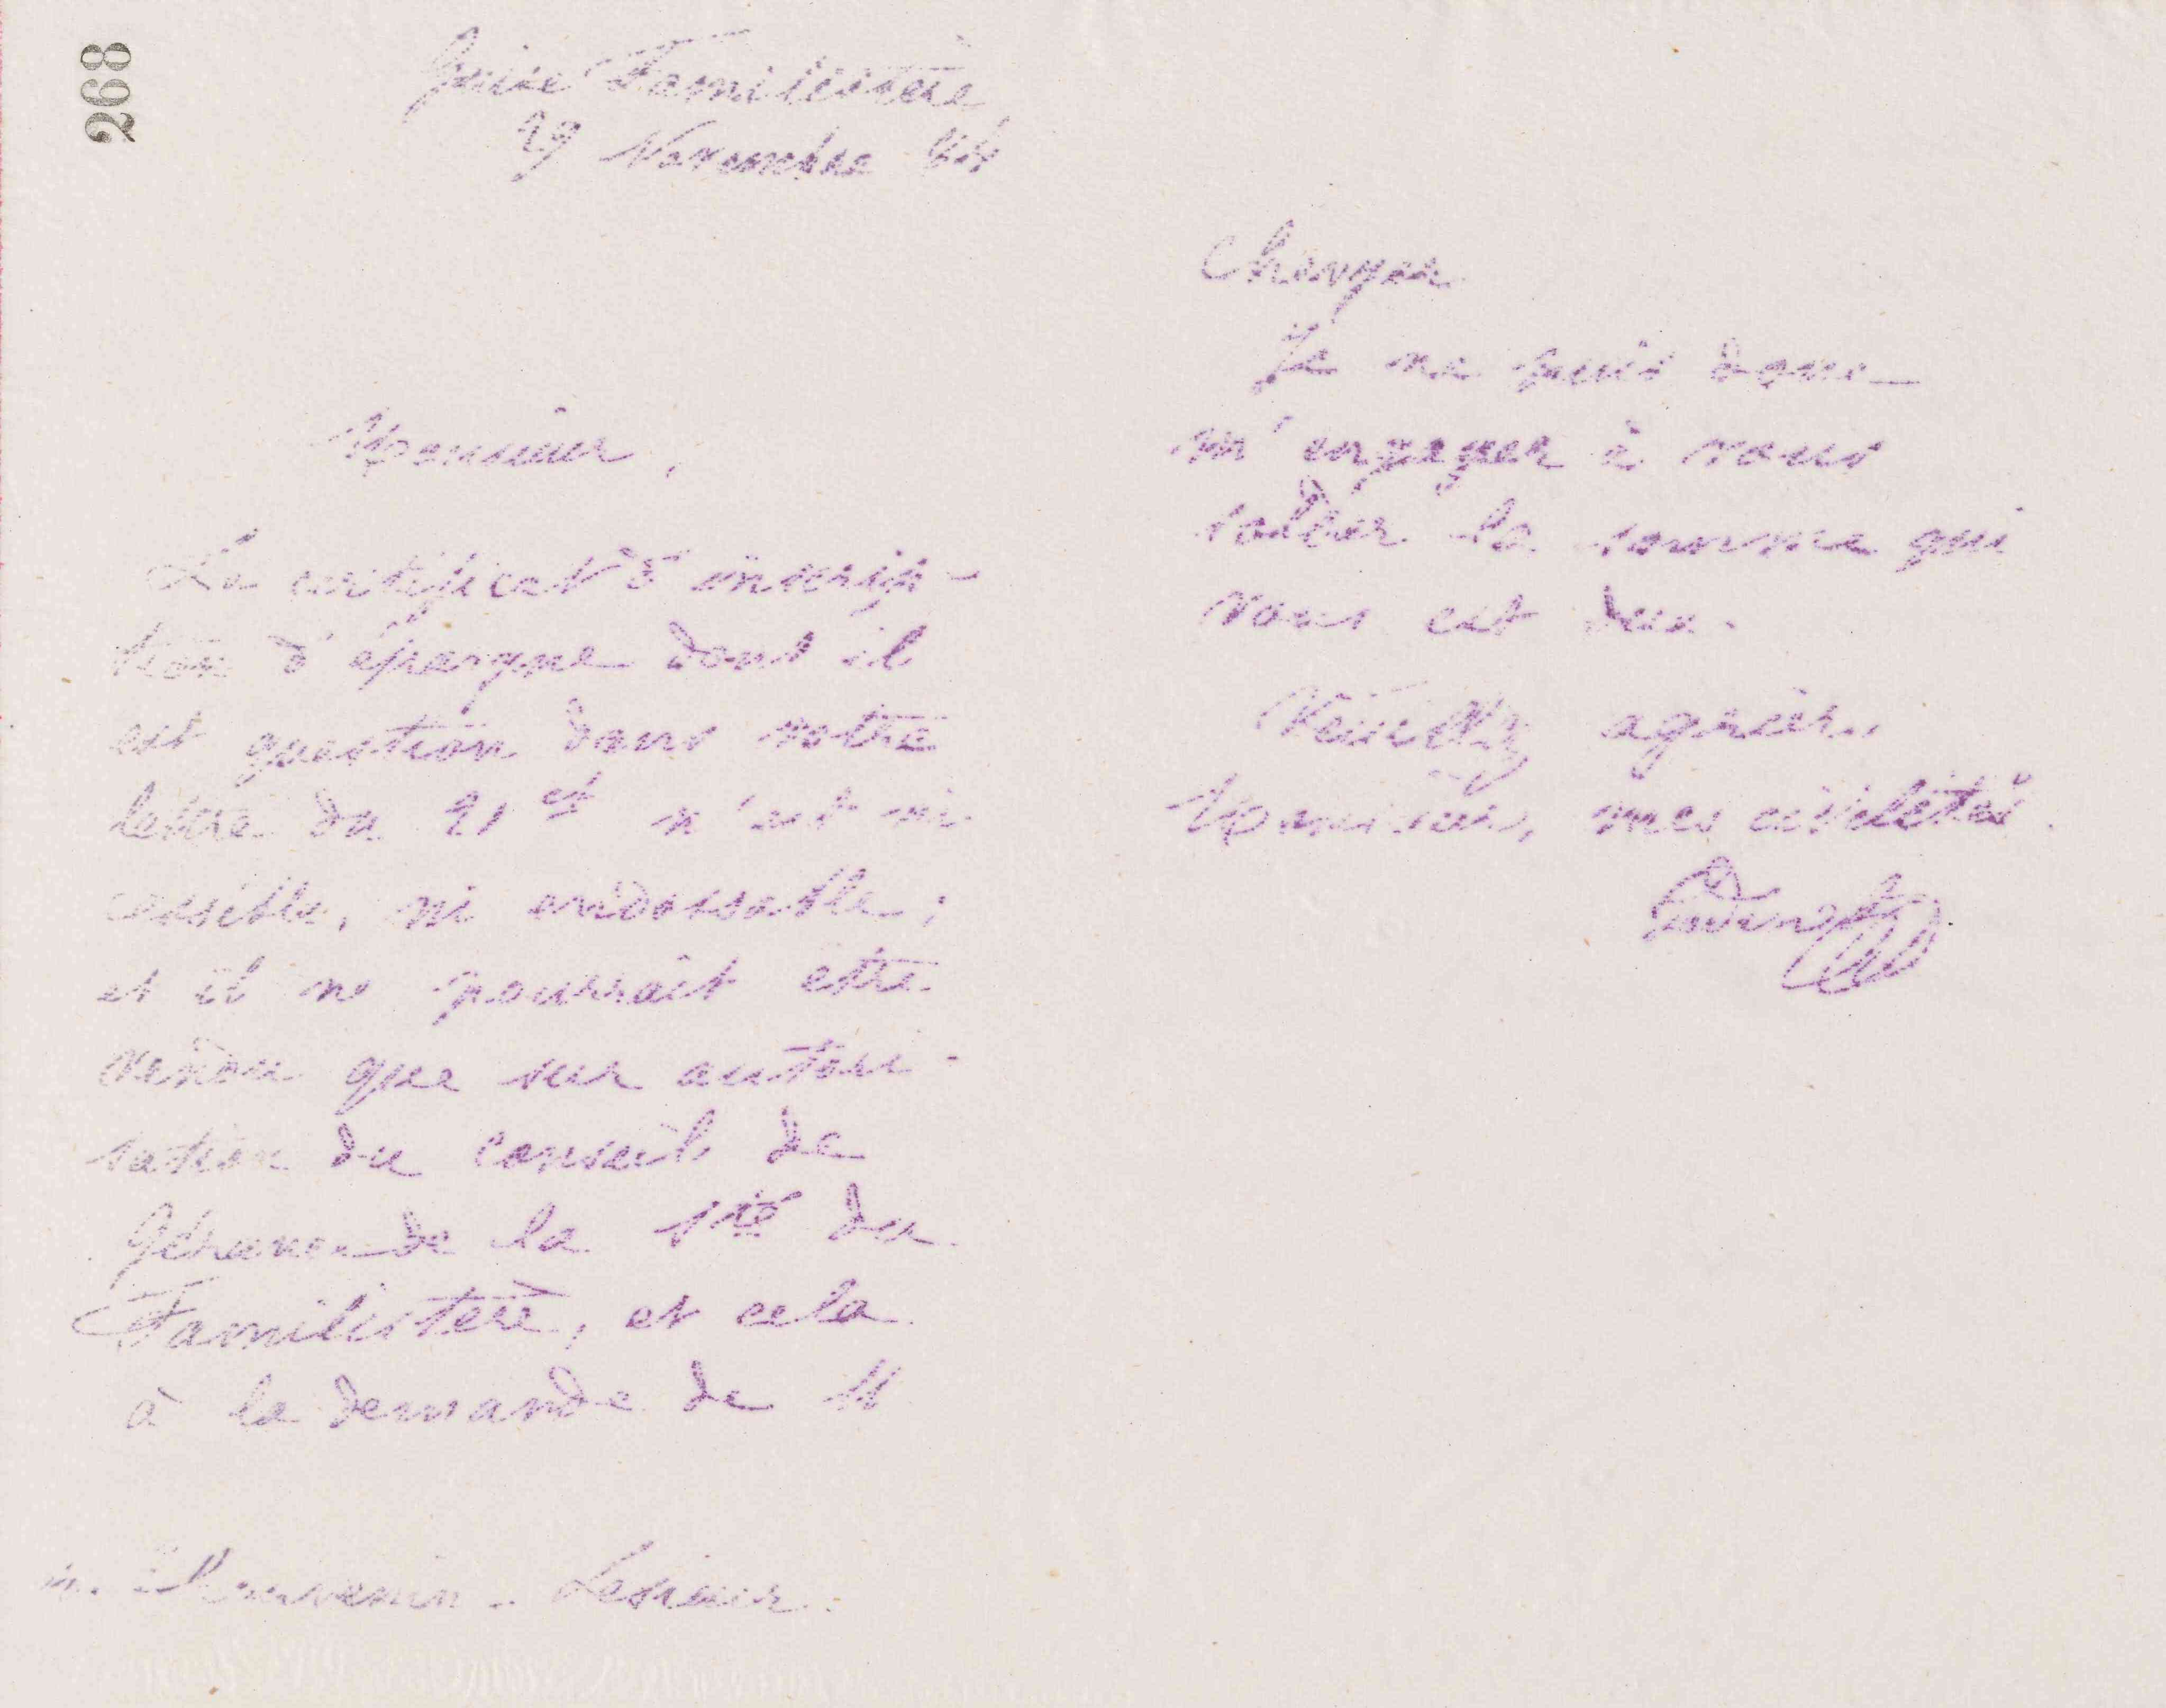 268
Guise Familistère
29 Novembre 84
Monsieur,
Le certificat d'inscrip-
tion d'épargne dont il
est question dans votre
lettre du 21 ct n'est ni
cessible, ni endossable;
et il ne pourrait être
vendu que sur autori-
sation du conseil de
Gérance de la Sté du
Familistère, et cela
à la demande de M
M. Thouvenin-Lesieur.
Chenyer
Je ne puis donc
m'engager à vous
solder la somme qui
vous est due.
Veuillez agréer,
Monsieur, mes civilités.
Godin